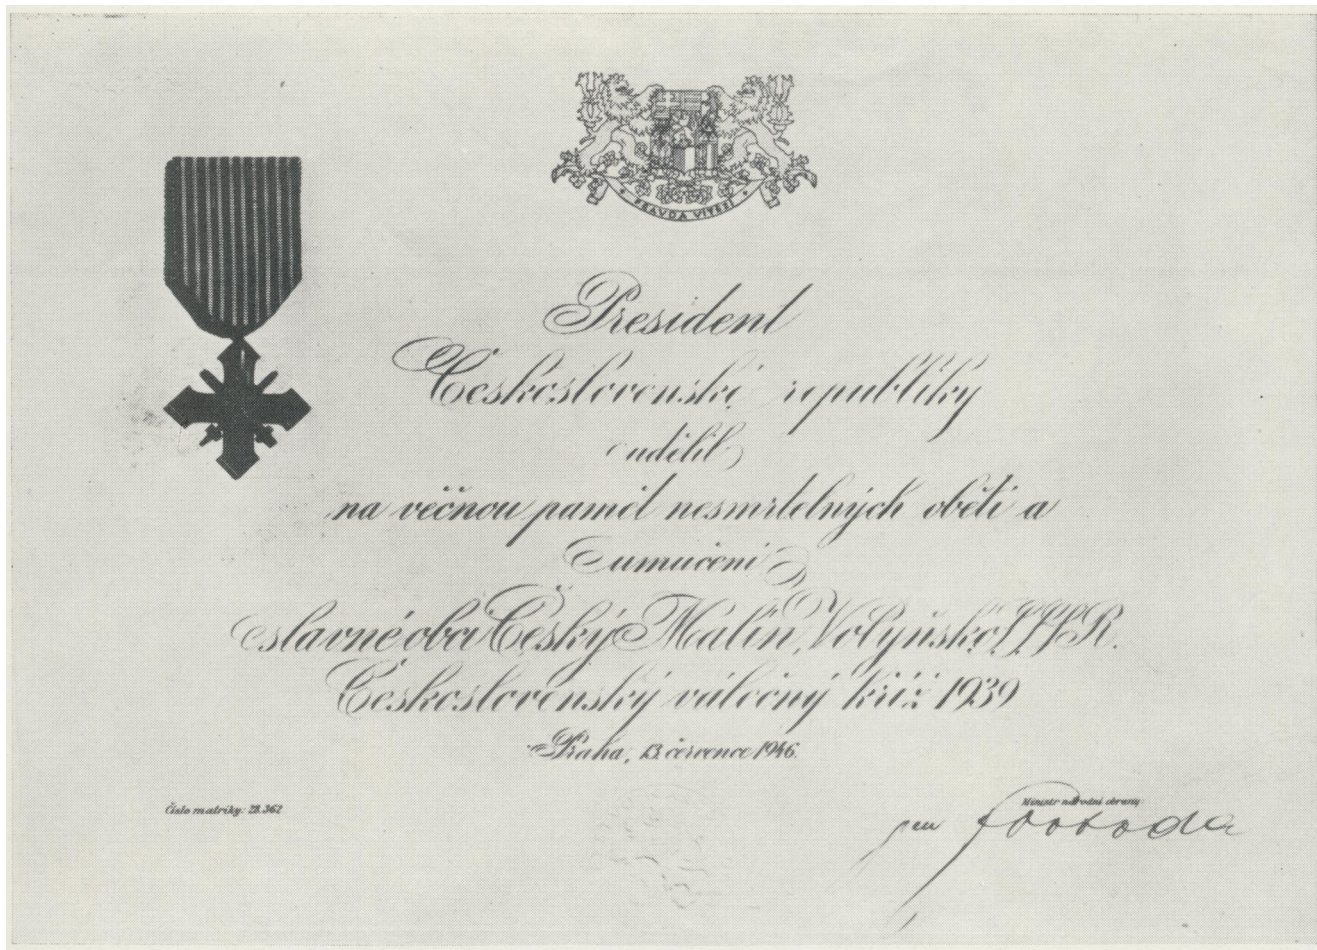 PRAVDA VÍTĚZÍ
President
Československé republiky
udělil
na věčnou paměť nesmrtelných obětí a
umučení
slavné obci Český Malín, Volyňsko, SSSR.
Československý válečný kříž 1939
Praha, 13. července 1946.
Číslo matriky: 28.362
Ministr národní obrany:
gen Svoboda